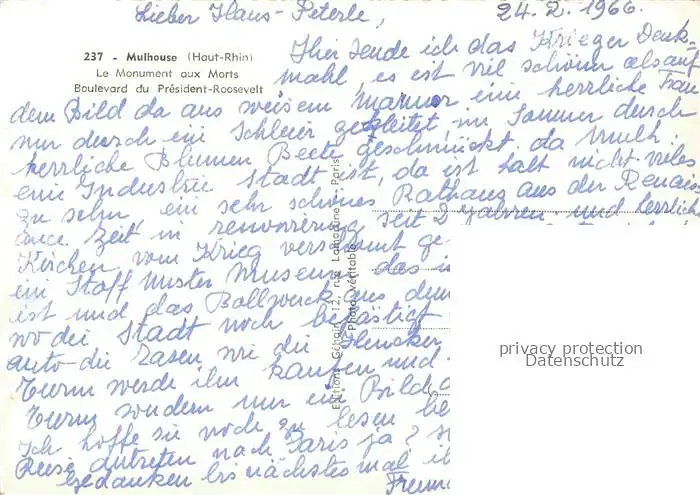 Lieber Hans-Peterle,
24.2.1966.
237 - Mulhouse (Haut-Rhin)
Le Monument aux Morts
Boulevard du Président-Roosevelt
Hier sende ich das Krieger Denk-
mahl, es ist viel schöner als auf
dem Bild da aus weisem Marmor eine herrliche Frau
nur durch ein Schleier im Sommer durch
herrliche Blumen Beete geschmückt. da Mulh.
eine Industrie Stadt ist, da ist halt nicht vieles
zu sehn, ein sehr schönes Rathaus aus der Renais
ance Zeit in renovirung seit 2 Jahren, und herrliche
Kirchen, vom Krieg verschont ge-
ein Stoff Muster Museum, das is
ist und das Bollwerck aus dem
wo die Stadt noch befästigt
auto die wie die
Turm werde ihn kaufen und
Turm sondern nur ein Bild
Ich hoffe sie noch zu lesen be
Reise antreten nach Paris ja?
Gedanken bis nächstes mal
Freund
Editions Gérour - 12, rue Lamartine - Paris
Photo véritable
privacy protection
Datenschutz